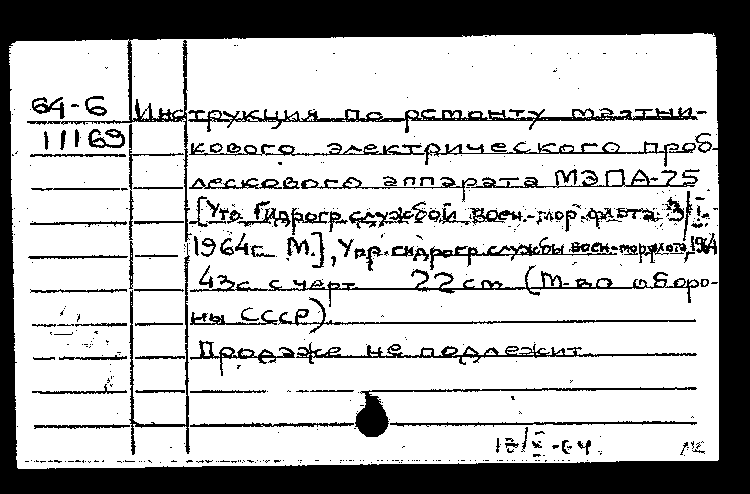 64-6
11169
Инструкция по ремонту маятни-
кового электрического проб-
лескового аппарата МЭПА-75
[Утв. Гидрогр. службой воен.-мор. флота 3/I-
1964г. М.], Упр. гидрогр. службы воен.-мор. флота, 1964
43с. с черт. 22 см. (М-во оборо-
ны СССР).
Продаже не подлежит
13/X-64.